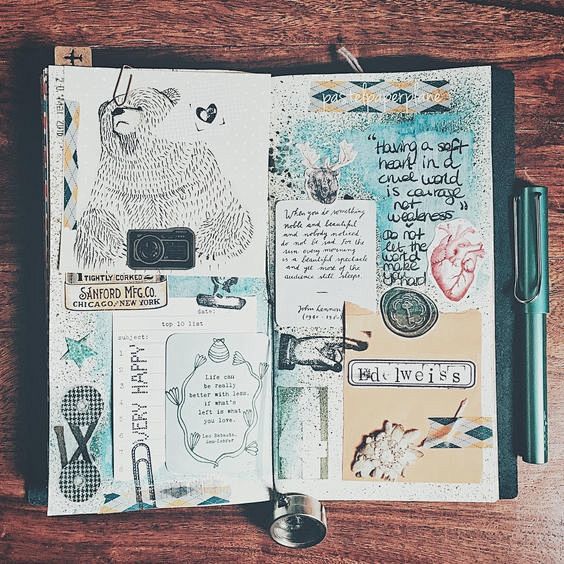 TIGHTLY CORKED
SANFORD MFG. CO.
CHICAGO, NEW YORK
date:
top 10 list
subject:
1
2
3
4
VERY HAPPY
Life can
be really
better with less,
if what's
left is what
you love.
Leo Babauta,
pastelpaperplane
"Having a soft
heart in a
cruel world
is courage
not
weakness"
Do not
let the
world
make
you hard
When you do something
noble and beautiful
and nobody noticed
do not be sad. For the
sun every morning
is a beautiful spectacle
and yet most of the
audience still sleeps.
John Lennon
Edelweiss